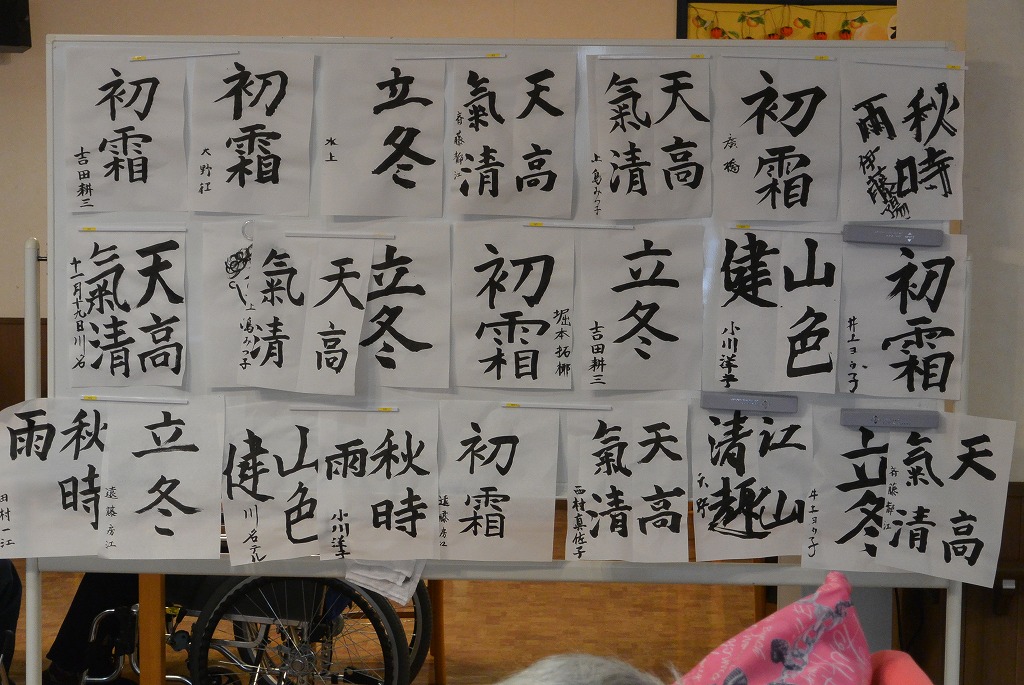 初霜
吉田耕三
初霜
大野
立冬
水上
天高
氣清
斉藤静江
天高
氣清
上島みつ子
初霜
廣橋
秋時
雨
天高
氣清
十一月十九日川谷
天高
氣清
上島みつ子
立冬
初霜
堀本拓
立冬
吉田耕三
山色
健
小川洋子
初霜
井上ヨシ子
秋時
雨
田村一江
立冬
遠藤房江
山色
健
川谷テル
秋時
雨
小川洋子
初霜
遠藤房江
天高
氣清
西村真佐子
江山
清趣
大野
立冬
井上ヨシ子
天高
氣清
斉藤静江